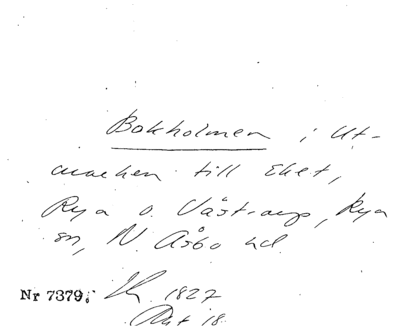 Bokholmen i Ut-
marken till Eket,
Rya o. Västraup, Rya
sn, N. Åsbo hd.
Nr 7379. 1827
Akt 18.